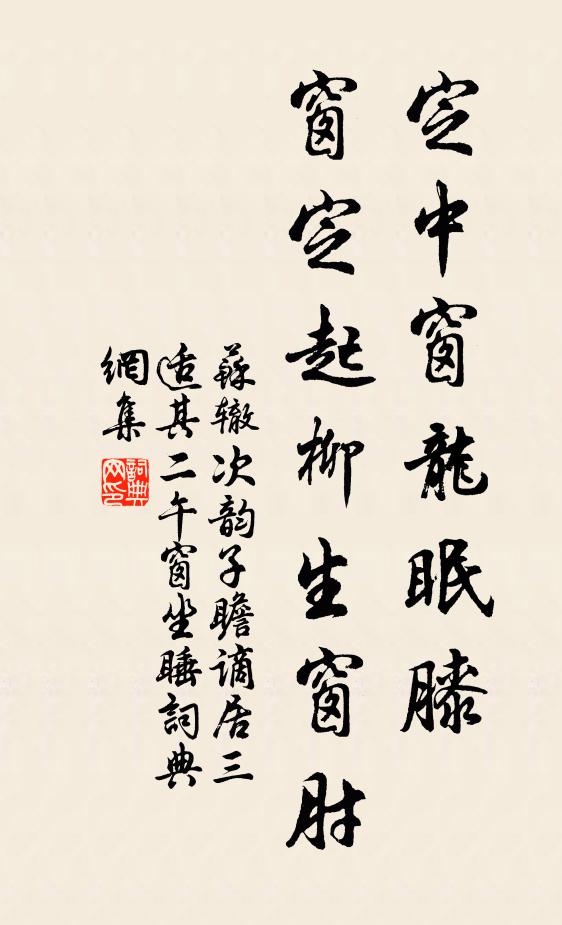 定中窗龍眠膝
窗定起柳生窗肘
蘇辙次韵子瞻谪居三
适其二午窗坐睡詞典
網集
詞典网印